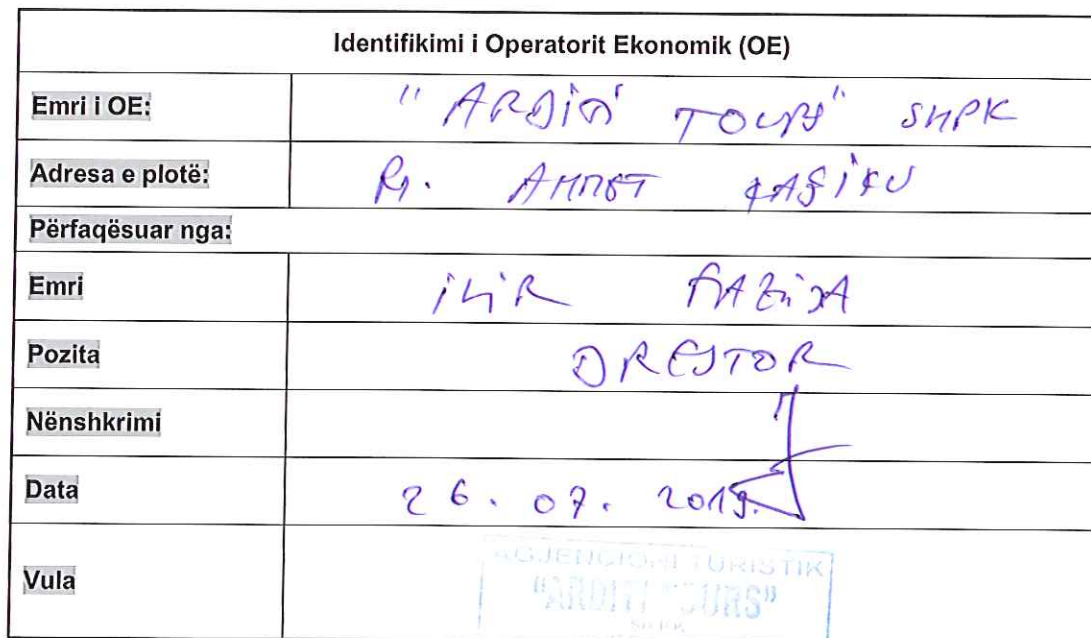 Identifikimi i Operatorit Ekonomik (OE)
Emri i OE: "ARDITI TOURS" SHPK
Adresa e plotë: Rr. AHMET KAÇIKU
Përfaqësuar nga:
Emri ILIR
Pozita DREJTOR
Nënshkrimi
Data 26.07.2019.
Vula
AGJENCIONI TURISTIK
"ARDITI TOURS"
SH.P.K